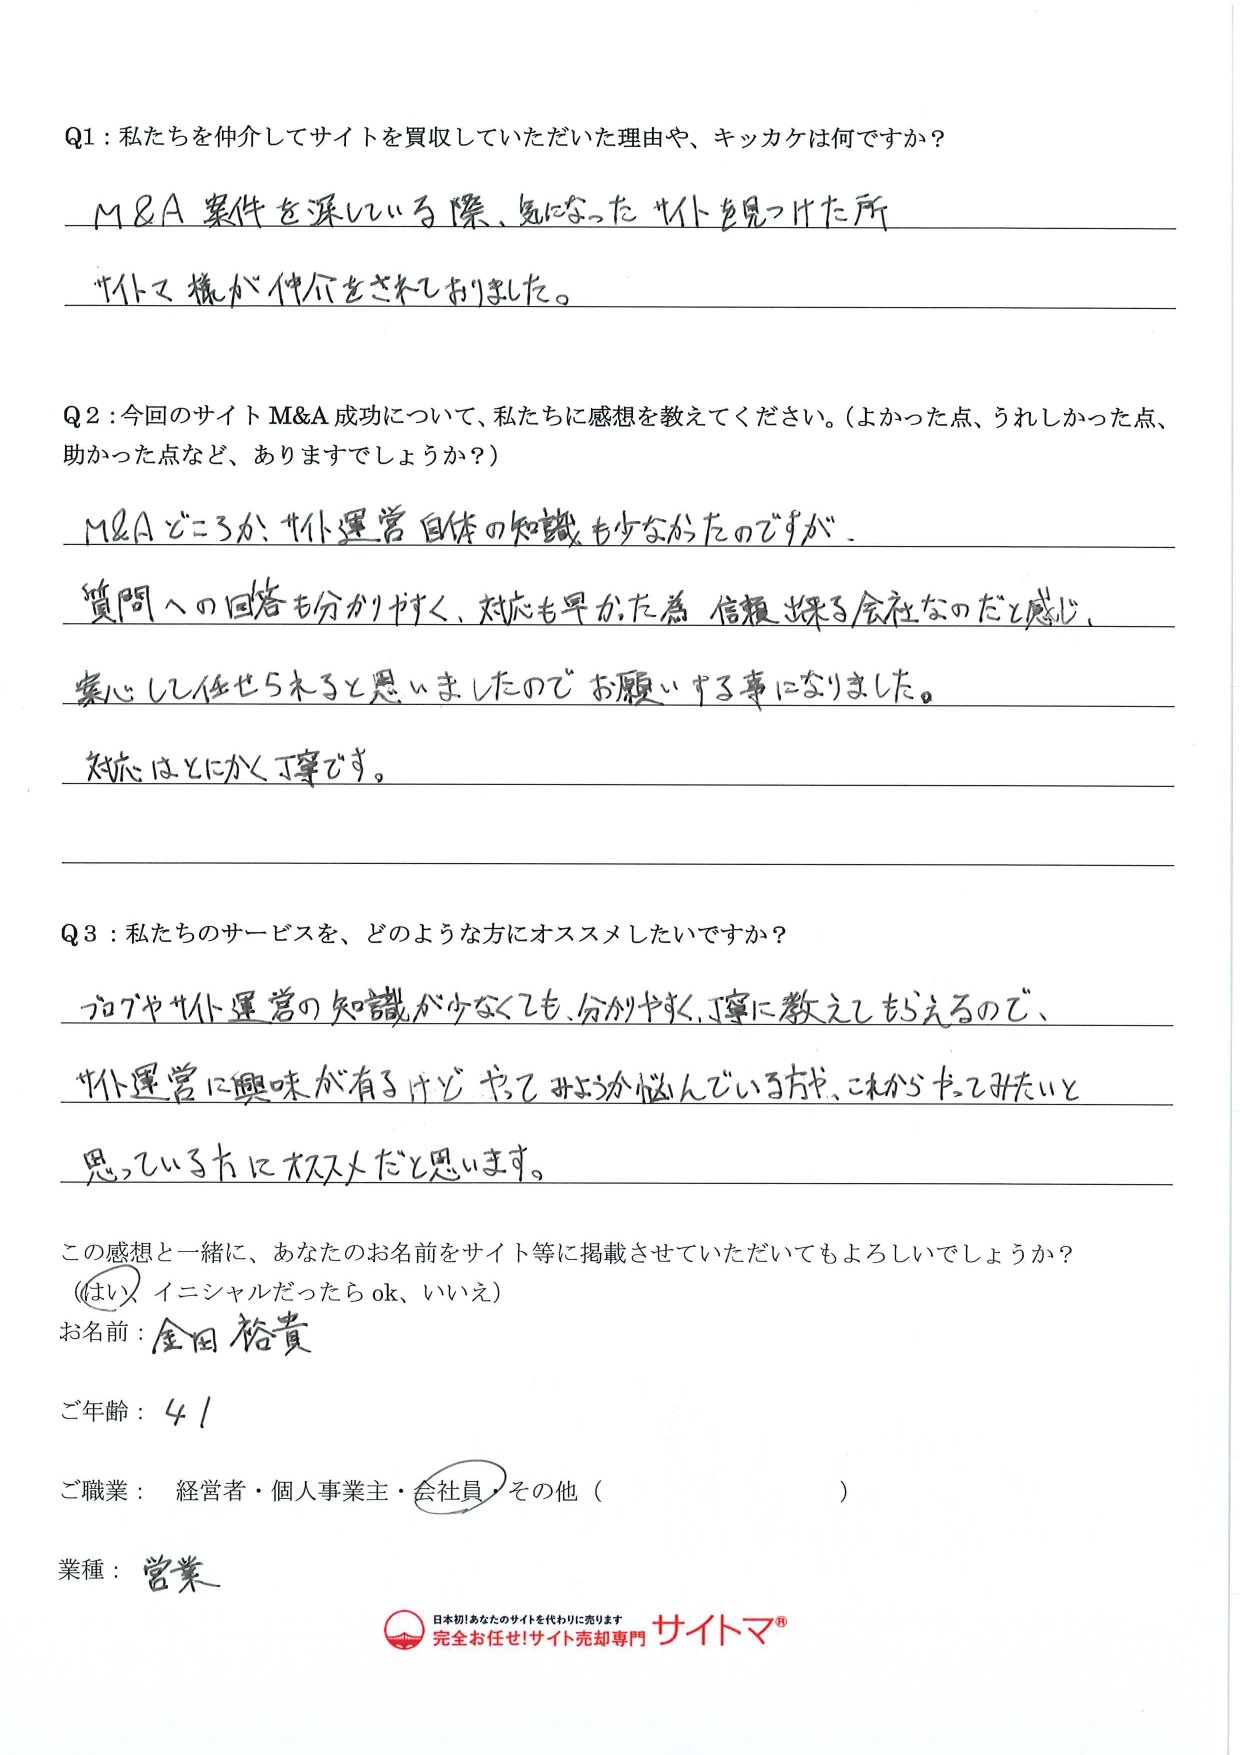 Q1：私たちを仲介してサイトを買収していただいた理由や、キッカケは何ですか？
M&A 案件を深している際、気になった サイトを見つけた所
サイトマ様が仲介をされておりました。
Q２：今回のサイト M&A 成功について、私たちに感想を教えてください。（よかった点、うれしかった点、
助かった点など、ありますでしょうか？）
M&Aどころか、サイト運営 自体の知識も少なかったのですが、
質問への回答も分かりやすく、対応も早かった為 信頼出来る会社なのだと感じ、
案心して任せられると思いましたので お願いする事になりました。
対応はとにかく丁寧です。
Q３：私たちのサービスを、どのような方にオススメしたいですか？
ブログやサイト運営の知識が少なくても、分かりやすく、丁寧に教えてもらえるので、
サイト運営に興味が有るけど やって みようか悩んでいる方や、これから やってみたいと
思っている方に オススメだと思います。
この感想と一緒に、あなたのお名前をサイト等に掲載させていただいてもよろしいでしょうか？
（はい、イニシャルだったら ok、いいえ）
お名前：金田 裕貴
ご年齢：41
ご職業： 経営者・個人事業主・会社員・その他（ ）
業種：営業
日本初！あなたのサイトを代わりに売ります
完全お任せ！サイト売却専門 サイトマ®